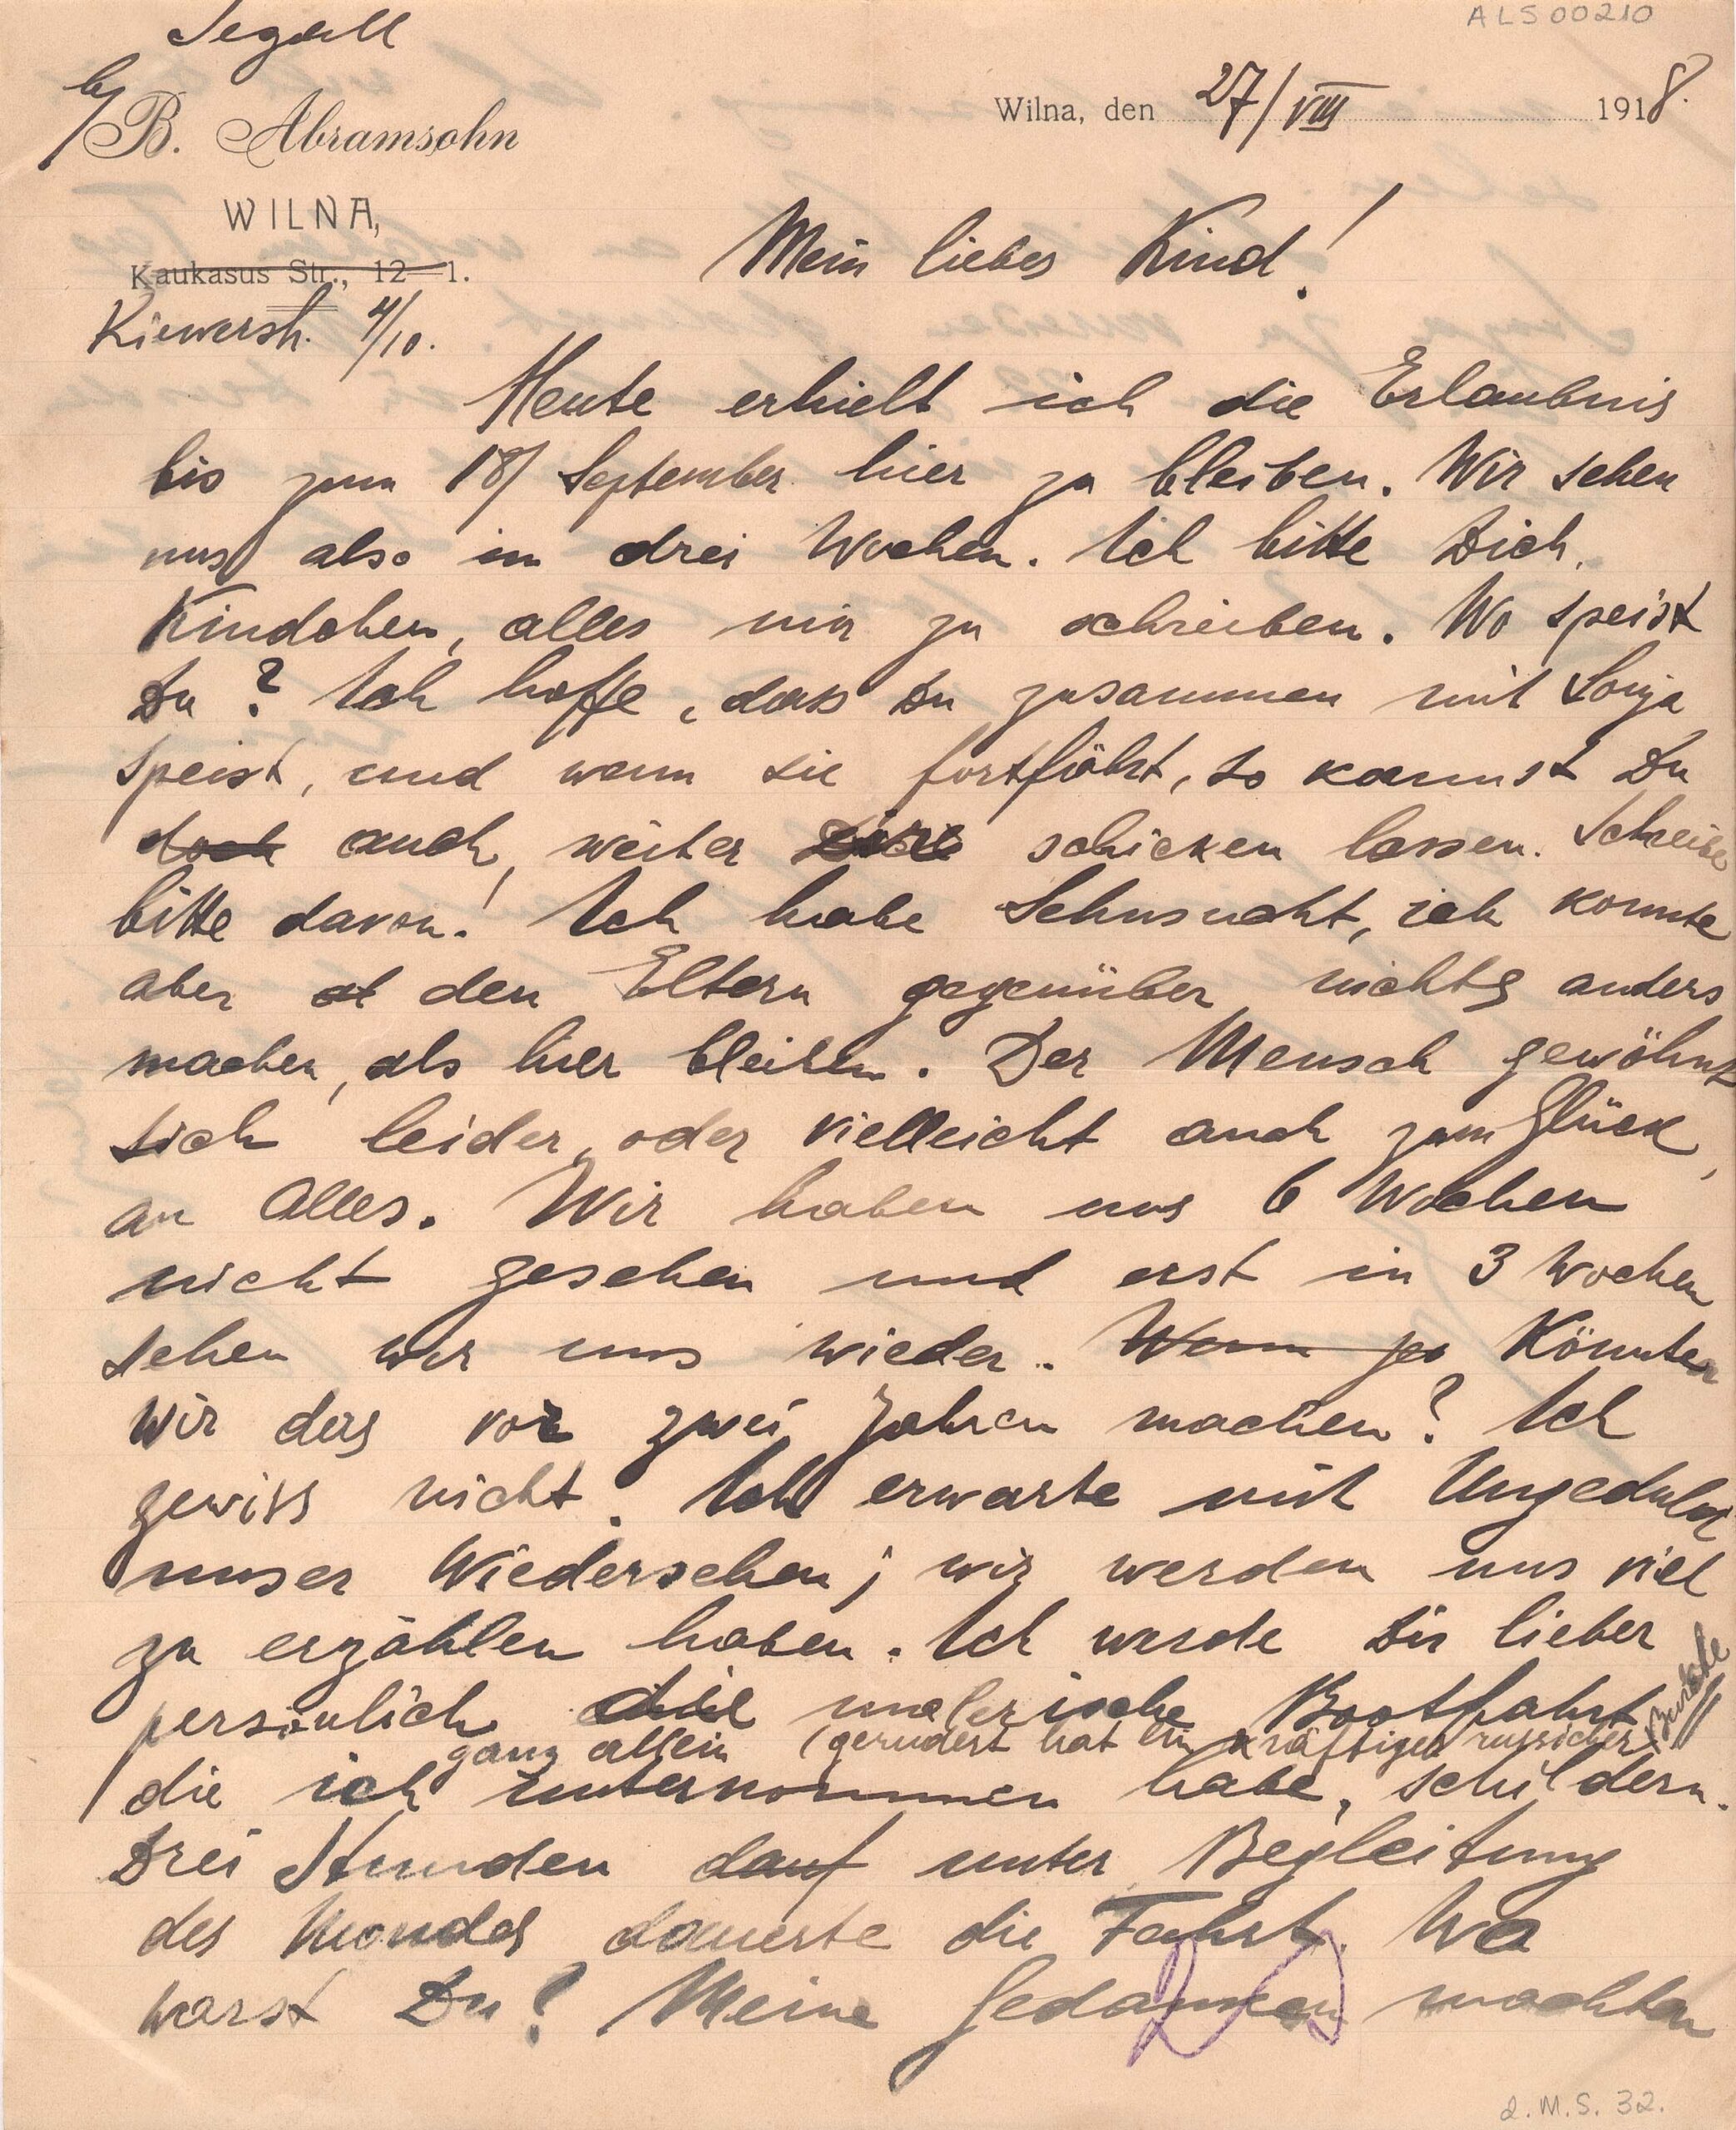 ALS00210
Segall
b/ B. Abramsohn
WILNA,
Kaukasus Str., 12-1.
Kiewerstr. 4/10.
Wilna, den 27/VIII 1918.
Mein liebes Kind!
Heute erhielt ich die Erlaubnis
bis zum 18/ September hier zu bleiben. Wir sehen
uns also in drei Wochen. Ich bitte Dich,
Kindchen, alles mir zu schreiben. Wo speist
Du? Ich hoffe, dass Du zusammen mit Sonja
speist, und wenn sie fortfährt, so kannst Du
doch auch, weiter schicken lassen. Schreibe
bitte davon! Ich habe Sehnsucht, ich konnte
aber den Eltern gegenüber nichts anders
machen, als hier bleiben. Der Mensch gewöhnt
sich leider, oder vielleicht auch zum Glück,
an Alles. Wir haben uns 6 Wochen
nicht gesehen und erst in 3 Wochen
sehen wir uns wieder. Wenn ja Könnten
wir das vor zwei Jahren machen? Ich
gewiss nicht. Ich erwarte mit Ungeduld
unser Wiedersehen; wir werden uns viel
zu erzählen haben. Ich werde Dir lieber
persönlich die malerische Bootfahrt
ganz allein (gerudert hat ein kräftiger russischer Bursche
die ich unternommen habe, schildern.
Drei Stunden dauf unter Begleitung
des Mondes dauerte die Fahrt. Wo
warst Du? Meine Gedanken machten
2.M.S. 32.